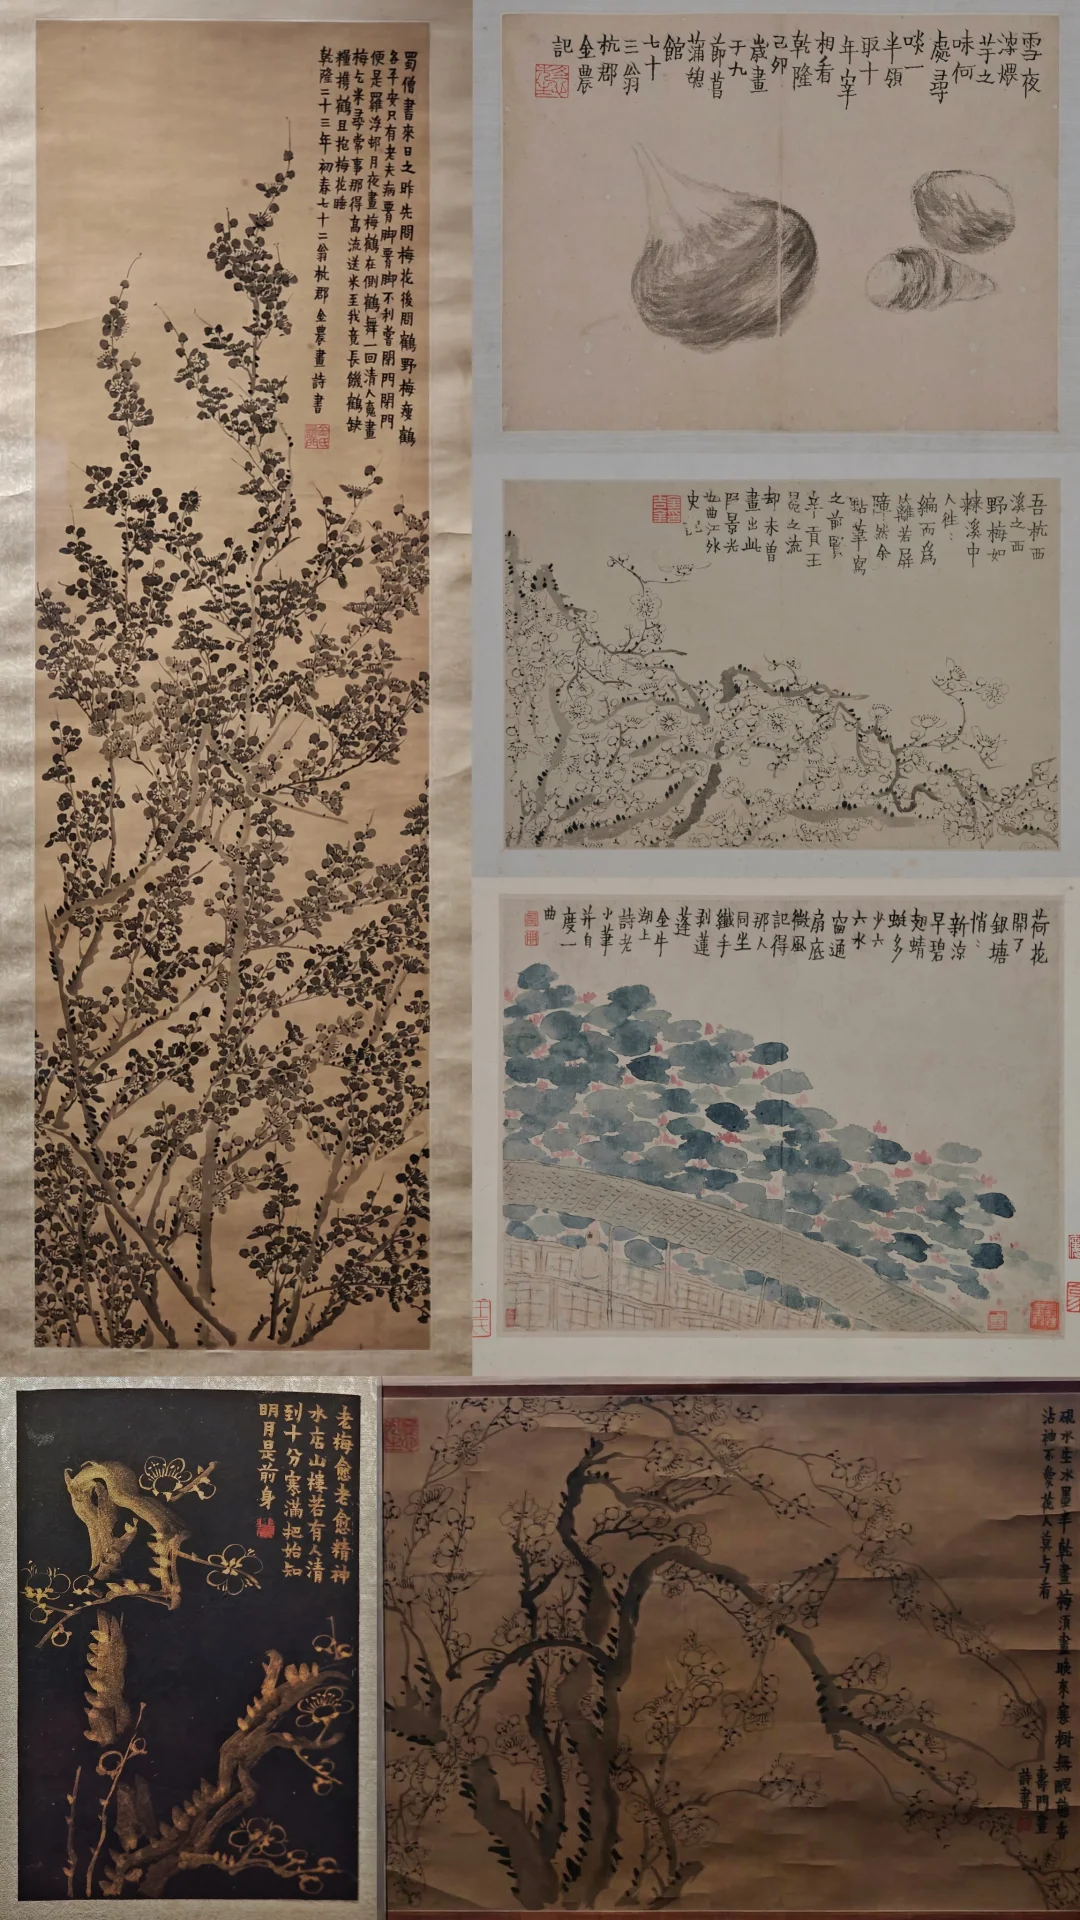 蜀僧書來日之昨先問梅花後問鶴野梅瘦鶴
各平安只有老夫病腎脚腎脚不利嘗閉門閉門
便是羅浮邨月夜畫梅鶴在側鶴舞一回清人䰟畫
梅乞米尋常事那得高流送米至我竟長饑鶴缺
糧攜鶴且抱梅花睡
乾隆二十三年初春七十二翁杭郡金農畫詩書
雪夜
深煨
芋之
味何
處尋
啖一
半領
取十
年宰
相看
乾隆
己卯
歲畫
于九
節菖
蒲憩
館
七十
三翁
杭郡
金農
記
吾杭西
溪之西
野梅如
棘溪中
人往:
編而為
籬若屏
障然余
點筆寫
之前賢
辛貢王
冕之流
却未曽
畫出此
段景光
也曲江外
史記
荷花
開了
銀塘
悄:
新涼
早碧
翅蜻
蜓多
少六
六水
窗通
扇底
微風
記得
那人
同坐
纖手
剥蓮
蓬
金牛
湖上
詩老
小筆
并自
度一
曲
老梅愈老愈精神
水店山樓若有人清
到十分寒滿把始知
明月是前身
硯水生冰墨半乾畫梅須畫晚來寒樹無醜態香
沾袖不愛花人莫与看
壽門畫
詩書